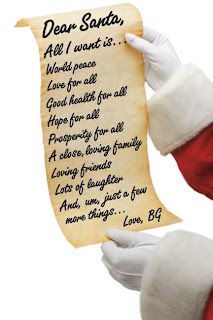 Dear Santa,
All I want is...
World peace
Love for all
Good health for all
Hope for all
Prosperity for all
A close, loving family
Loving friends
Lots of laughter
And, um, just a few
more things...
Love, BG